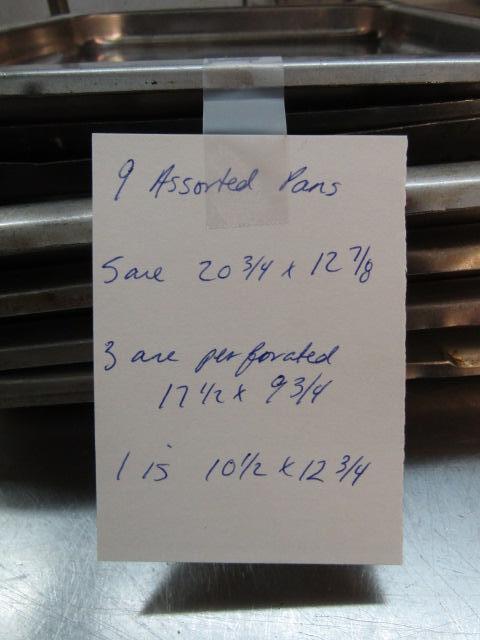 9 Assorted Pans
5 are 20 3/4 x 12 7/8
3 are perforated
17 1/2 x 9 3/4
1 is 10 1/2 x 12 3/4